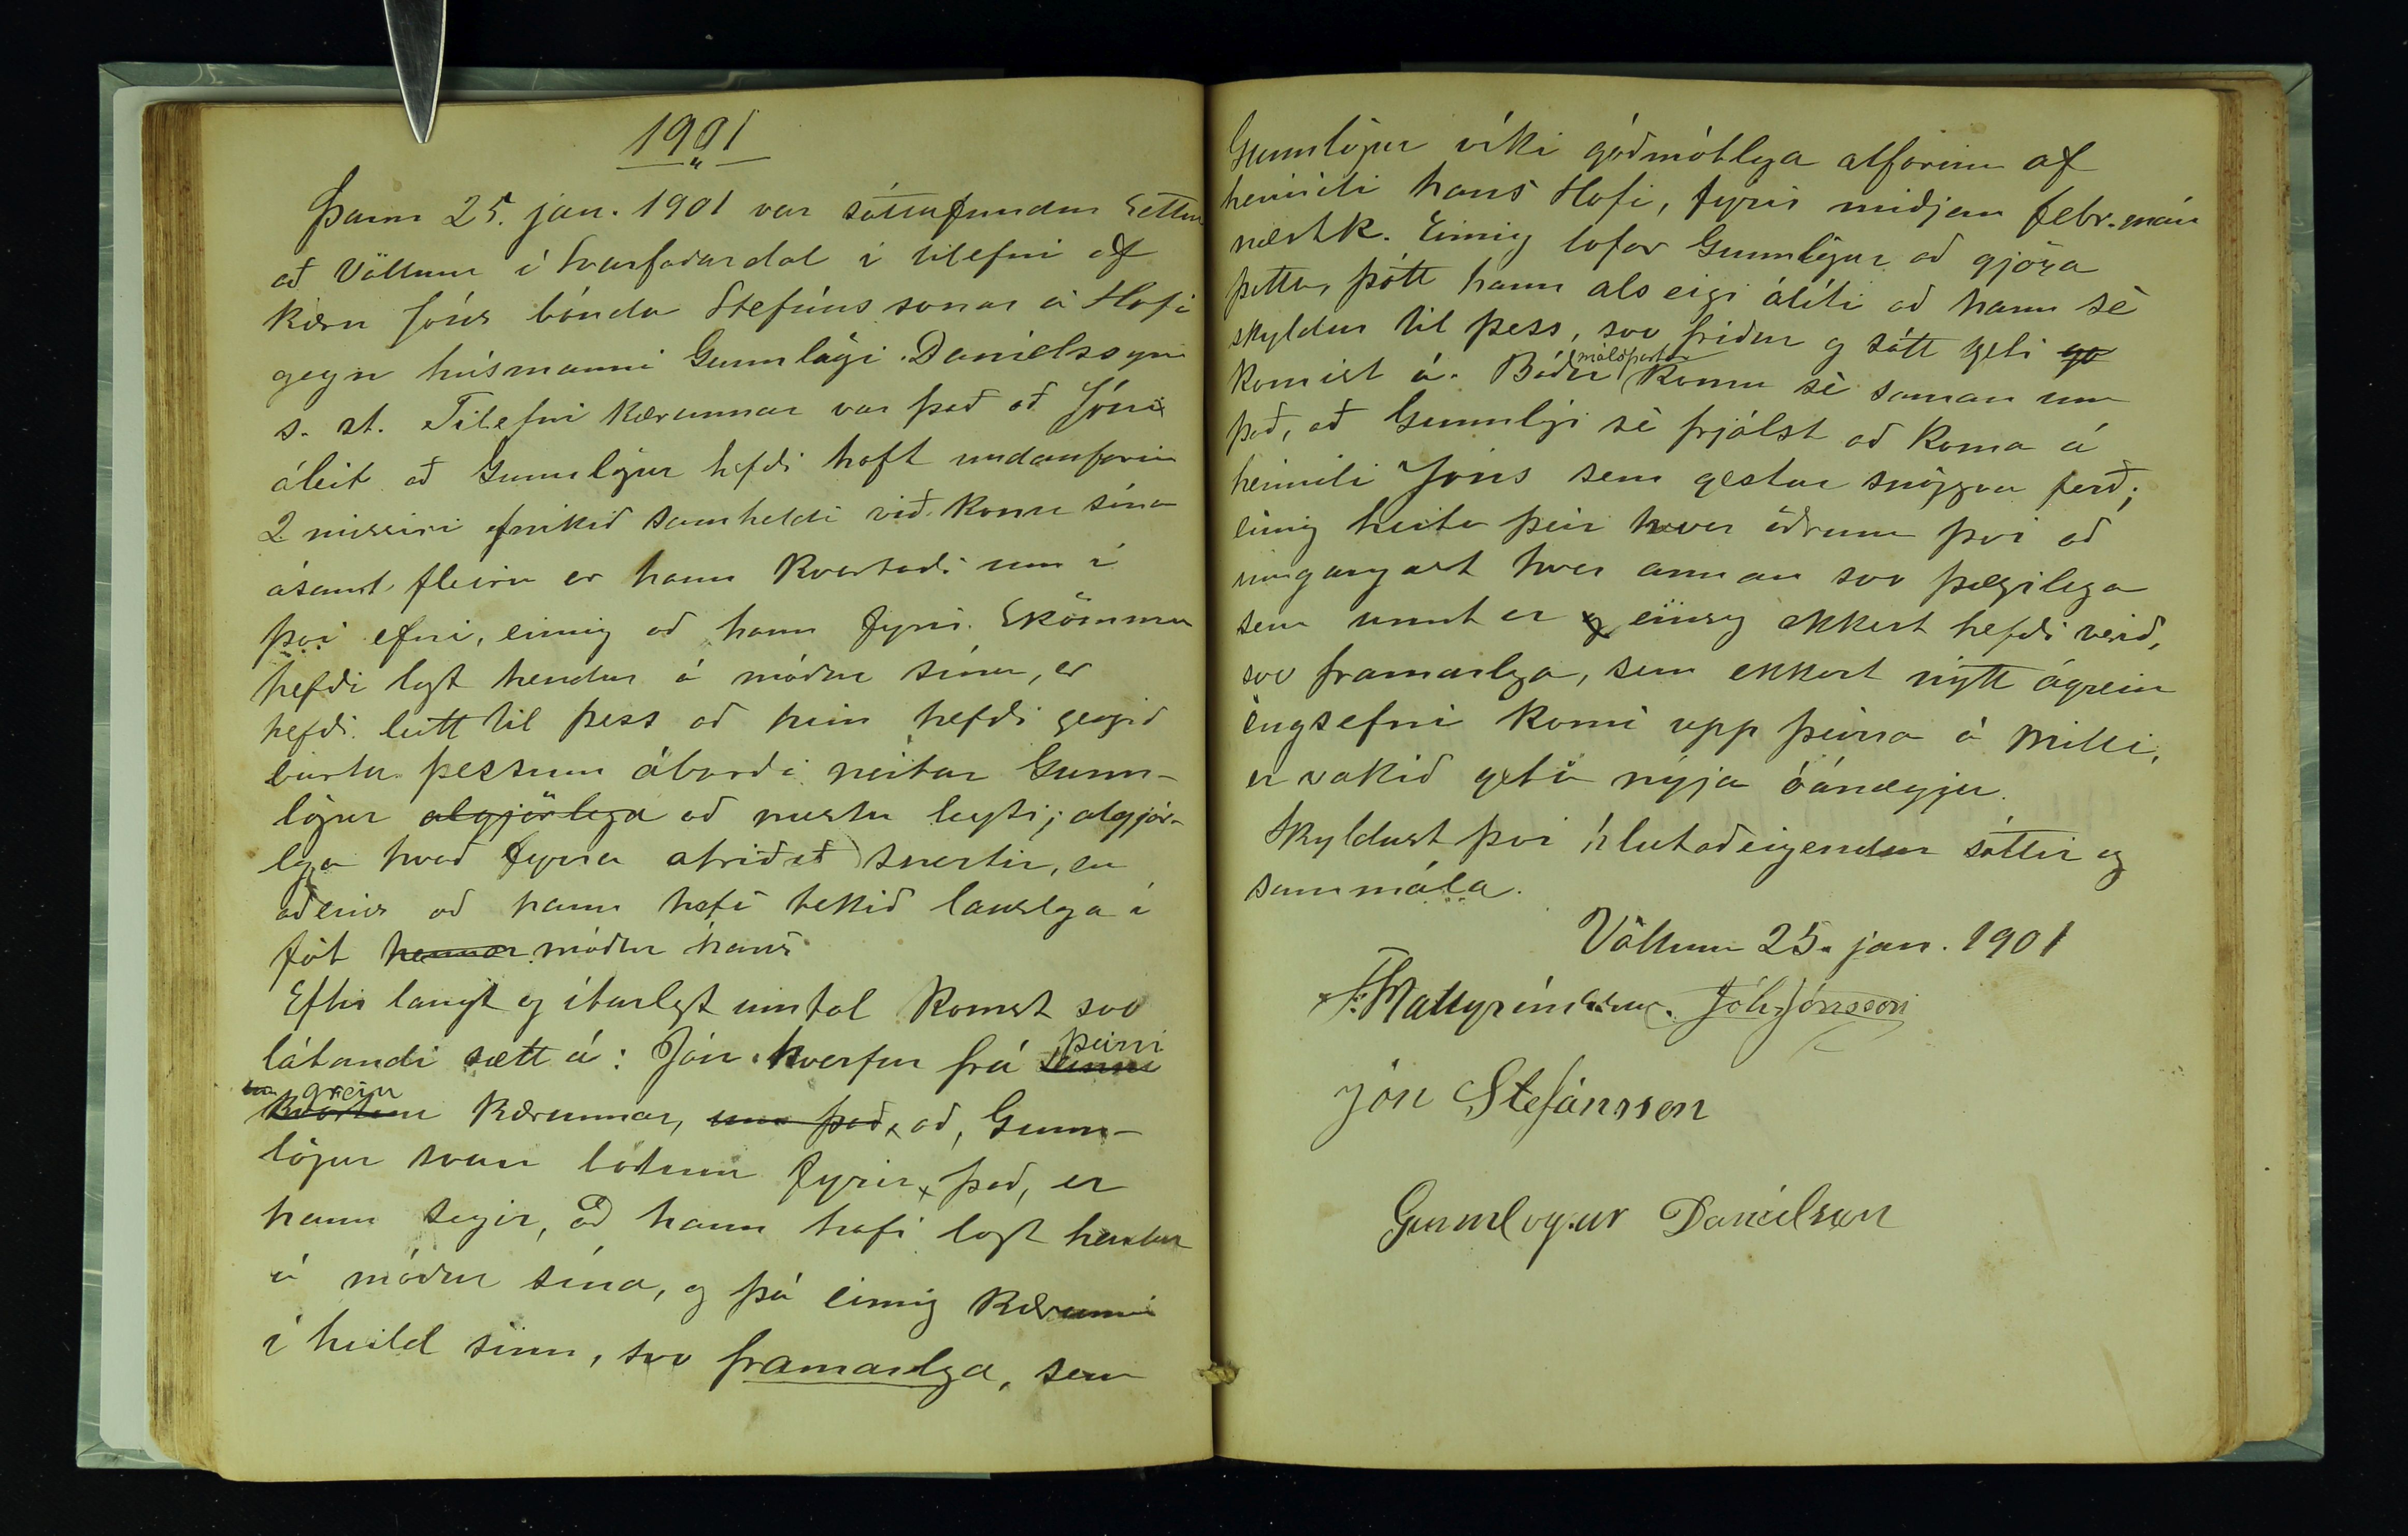 1901
Þann 25. jan. 1901 var sáttafundur settur
að Völlum í Svarfaðardal í tilefni af
kæru Jóns bónda Stefánssonar á Hofi
gegn húsmanni Gunnlögi Daníelssyni
s. st. Tilefni kærunnar var það að Jón
áleit að Gunnlögur hefði haft undanfarin
2 missiri mikið samheldi við konu sína
ásamt fleiru er hann kvartaði um í
því efni, einnig að hann fyrir skömmu
hefði lagt hendur á móður sína, er
hefði leitt til þess að hún hefði gengið
burtu. þessum áburði neitar Gunn-
lögur algjörlega að mestu leyti; algjör-
lega hvað fyrra atriðið snertir, en
aðeins að hann hafi tekið lauslega í
föt hennar móður hans
Eftir langt og ítarlegt umtal komst svo
látandi sætt á: Jón hverfur frá þeirri
grein kærunnar, um það, að, Gunn-
lögur svari bótum fyrir það, er
hann segir, að hann hafi lagt hendur
á móður sína, og þá einnig kærunni
í heild sinni, svo framarlega, sem
Gunnlögur víki góðmótlega alfarinn af
heimili hans Hofi, fyrir miðjan febr. mán
næstk. Einnig lofar Gunnlögur að gjöra
þetta, þótt hann als eigi áliti að hann sè
skyldur til þess, svo friður og sátt geti
komist á. Báðir málspartar komu sè saman um
það, að Gunnlögi sè frjálst að koma á
heimili Jóns sem gestur snöggva ferð;
einnig heita þeir hver öðrum því að
umgangast hver annan svo þægilega
sem unnt er og einsog ekkert hefði verið,
svo framarlega, sem ekkert nýtt ágrein
ingsefni komi upp þeirra á milli,
er vakið geti nýja óánægju.
Skyldust því hlutaðeigendur sáttir og
sammála.
Völlum 25. jan. 1901
Jóh Jónsson
Jón Stefánsson
Gunnlogur Danielsson